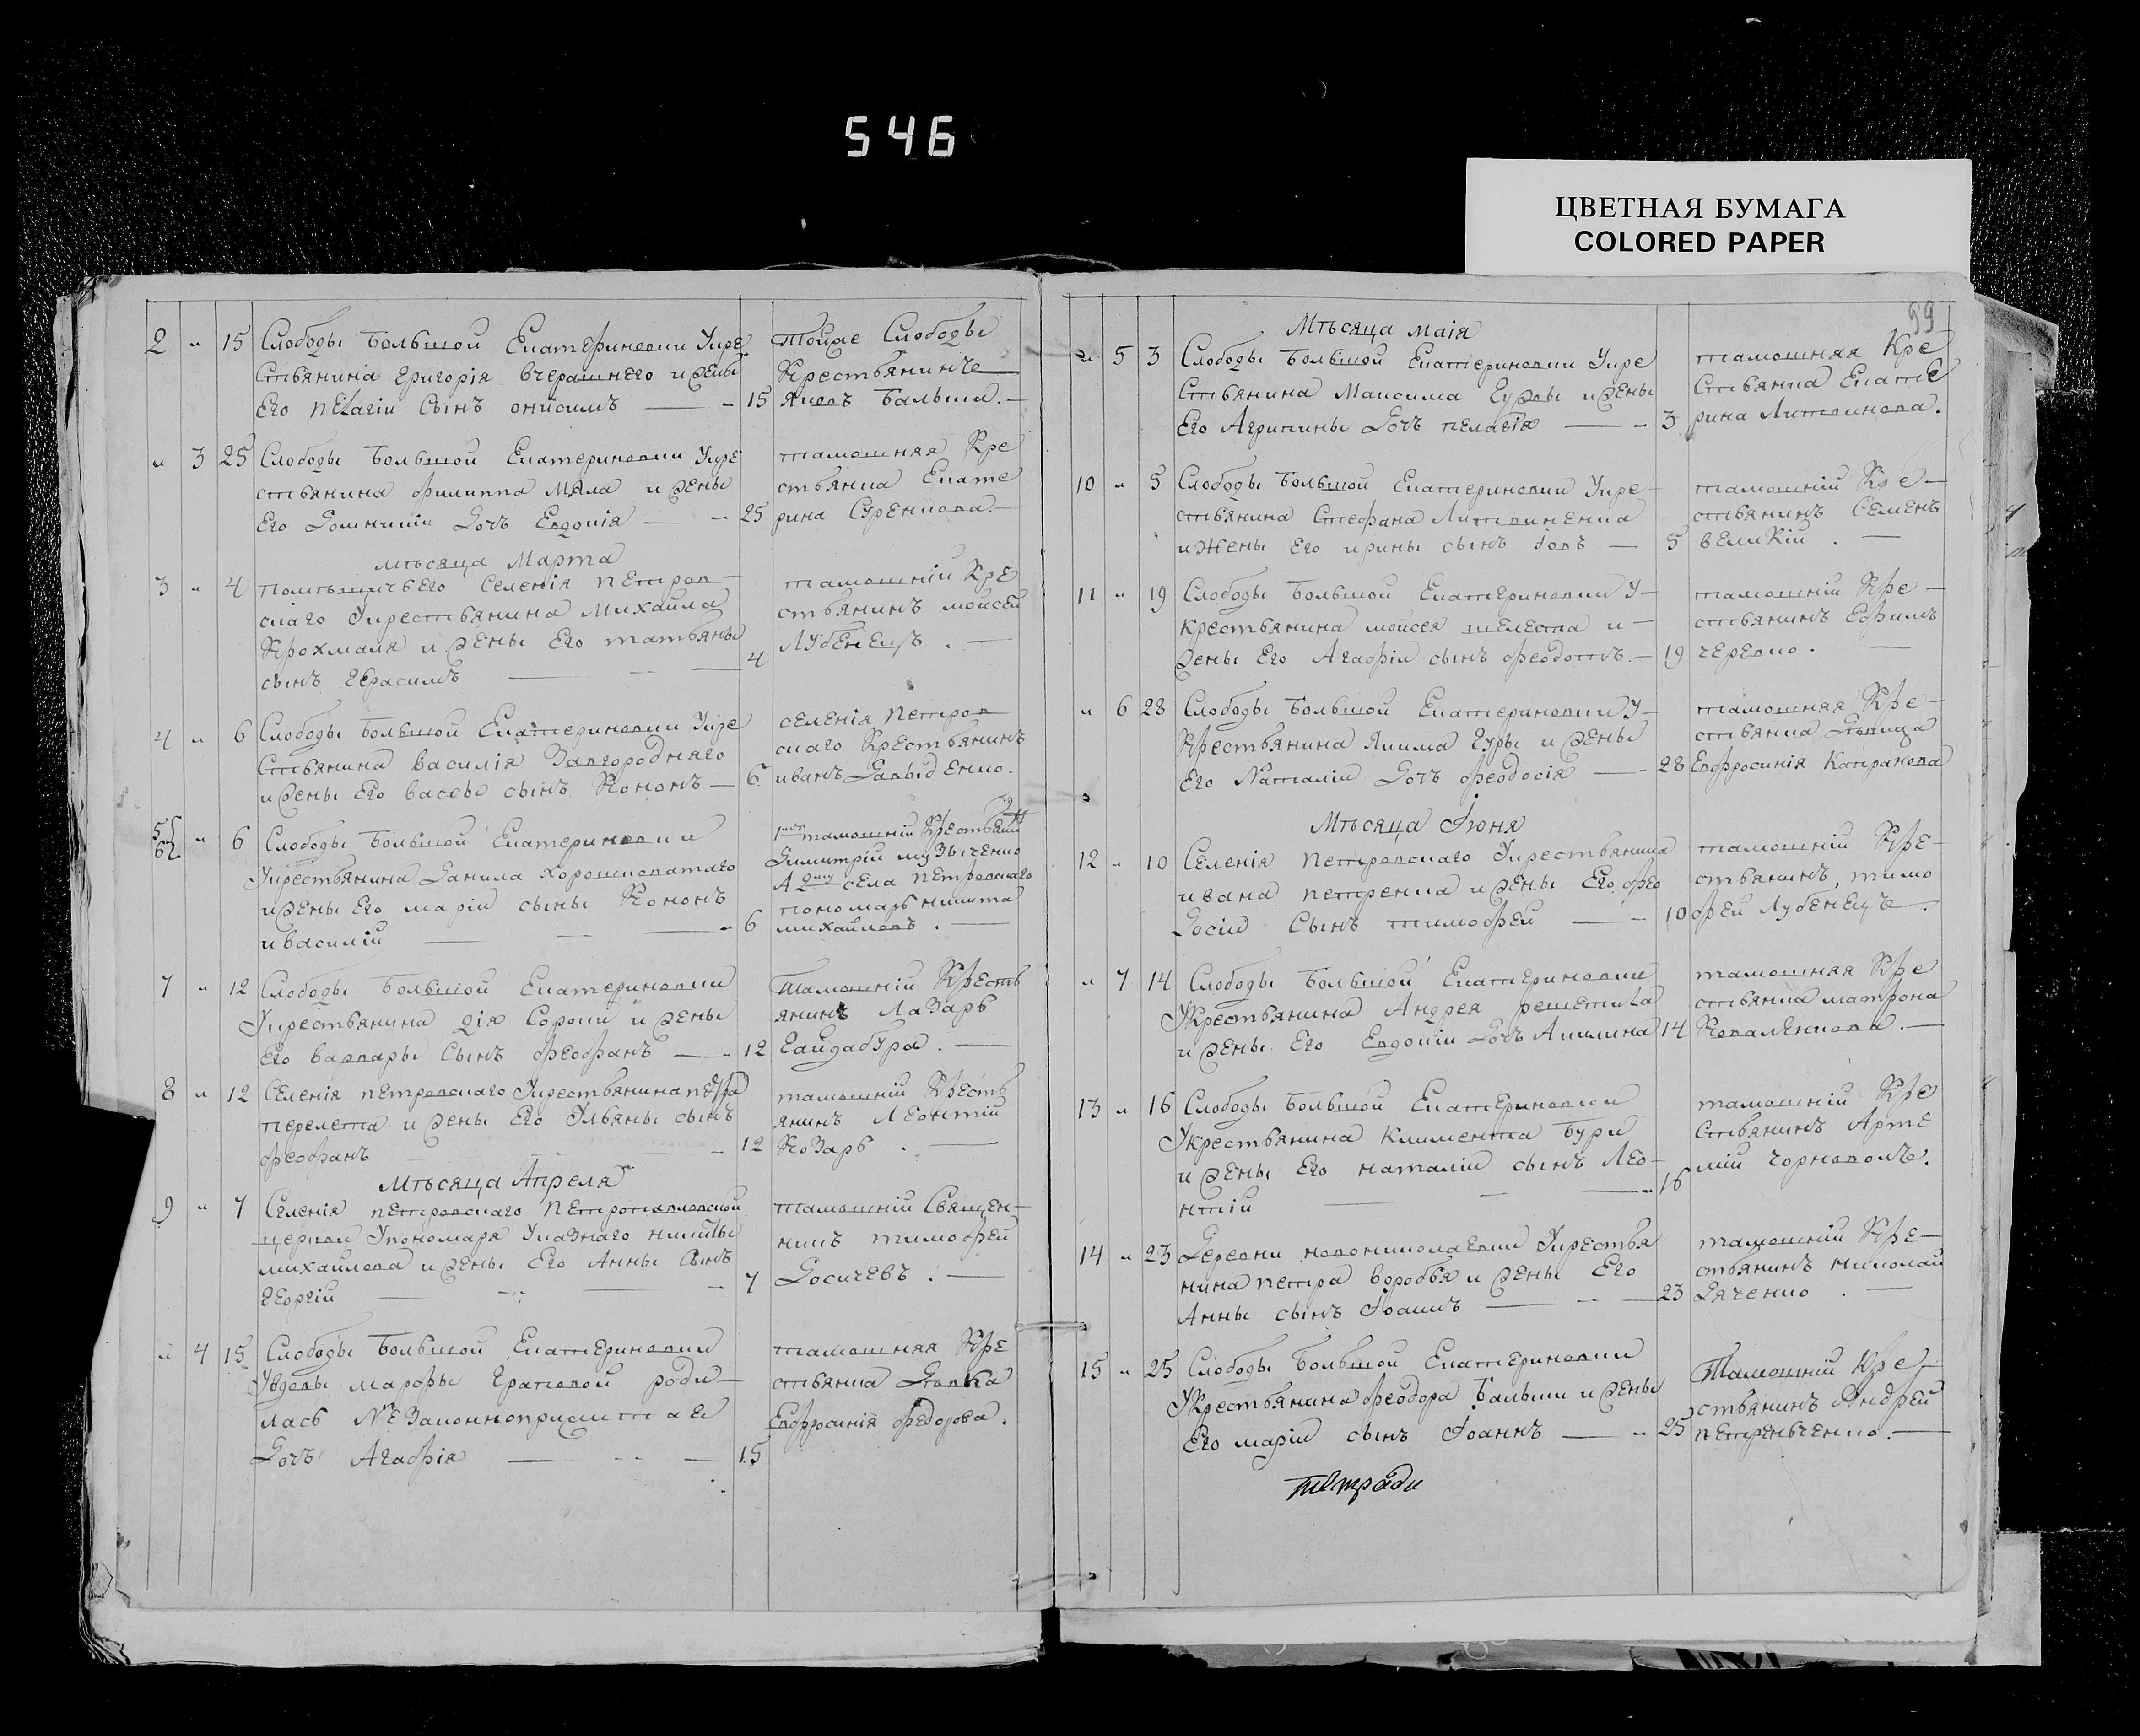 546
ЦВЕТНАЯ БУМАГА
COLORED PAPER
2 " 15 Слободы Большой Екатериновки Укре
стьянина Григорія Вчерашнего и жены
Его Пелагіи Сынъ Онисимъ — " 15
Тойже Слободы
Крестьянинъ
Яковъ Бальша. —
" 3 25 Слободы Большой Екатериновки Укре
стьянина Филиппа Мяла и жены
Его Домникіи Дочь Евдокія — " 25
тамошняя Кре
стьянка Екате
рина Сурепкова. —
мѣсяца Марта
3 " 4 помѣщичьего Селенія Петров-
скаго Укрестьянина Михайла
Крохмаля и жены Его татьяны
сынъ Герасимъ — " — 4
тамошній Кре
стьянинъ мойсей
Лубенецъ . —
4 " 6 Слободы Большой Екатериновки Укре
стьянина Василія Завгородняго
и жены Его Вассы сынъ Кононъ — 6
селенія Петров
скаго Крестьянинъ
иванъ Давыденко.
5 6 " 6 Слободы Большой Екатериновки
Укрестьянина Данила Хорошковатаго
и жены Его маріи сыны Кононъ
и василій — — — " 6
1му тамошній Крестьянин
Димитрій музыченко
А 2му села Петровскаго
пономарь никита
михайловъ . —
7 " 12 Слободы Большой Екатериновки
Укрестьянина Дія Сороки и жены
Его варвары Сынъ Феофанъ — " 12
Тамошній Кресть
янинъ Лазарь
Гайдабура . —
8 " 12 Селенія петровскаго Укрестьянина петра
перелета и жены Его Ульяны сынъ
Феофанъ " 12
тамошній Кресть
янинъ Леонтій
Козарь . —
Мѣсяца Апреля
9 " 7 Селенія петровскаго Петропавловской
церкви Упономаря Указнаго никиты
михайлова и жены Его Анны Сынъ
Георгій — " — " 7
тамошній Священ-
никъ тимофей
Досичевъ . —
" 4 15 Слободы Большой Екатериновки
Увдовы марфы Граковой роди-
лась Незаконноприжитая
Дочь Агафія — " — 15
тамошняя Кре
стьянка Девка
Евфросинія Федорова.
99
Мѣсяца маія
" 5 3 Слободы Большой Екатериновки Укре
стьянина Максима Гужвы и жены
Его Агрипины Дочь пелагія — " 3
тамошняя Кре
стьянка Екате
рина Литвинова.
10 " 5 Слободы Большой Екатериновки Укре-
стьянина Стефана Литвиненка
и Жены Его ирины сынъ Іовъ — 5
тамошній Кре-
стьянинъ Семенъ
великій . —
11 " 19 Слободы Большой Екатериновки У-
крестьянина мойсея шелеста и-
жены Его Агафіи сынъ Феодотъ. — 19
тамошній Кре-
стьянинъ Ефимъ
черевко . —
" 6 28 Слободы Большой Екатериновки У-
Крестьянина Якима Гуры и жены
Его Наталіи Дочь Феодосія — " 28
тамошняя Кре-
стьянка Девица
Евфросинія Капранова
Мѣсяца Іюня
12 " 10 Селенія петровскаго Укрестьянина
ивана петренка и жены Его Фео
Досіи Сынъ тимофей — " 10
тамошній Кре-
стьянинъ тимо
фей Лубенецъ .
" 7 14 Слободы Большой Екатериновки
Укрестьянина Андрея решетила
и жены Его Евдокіи Дочь Акилина 14
тамошняя Кре
стьянка матрона
Коваленкова. —
13 " 16 Слободы Большой Екатериновки
Укрестьянина Климента Бури
и жены Его наталіи сынъ Лео-
нтій — " — " 16
тамошній Кре
стьянинъ Арте
мій Чорноволъ.
14 " 23 Деревни новониколаевки Укрестья
нина петра воробья и жены Его
Анны сынъ Іоаннъ — " — 23
тамошній Кре-
стьянинъ николай
Дяченко . —
15 " 25 Слободы Большой Екатериновки
Укрестьянина Феодора Бальши и жены
Его маріи сынъ Іоаннъ — " 25
Тамошній Кре-
стьянинъ Андрей
петренченко. —
тетради